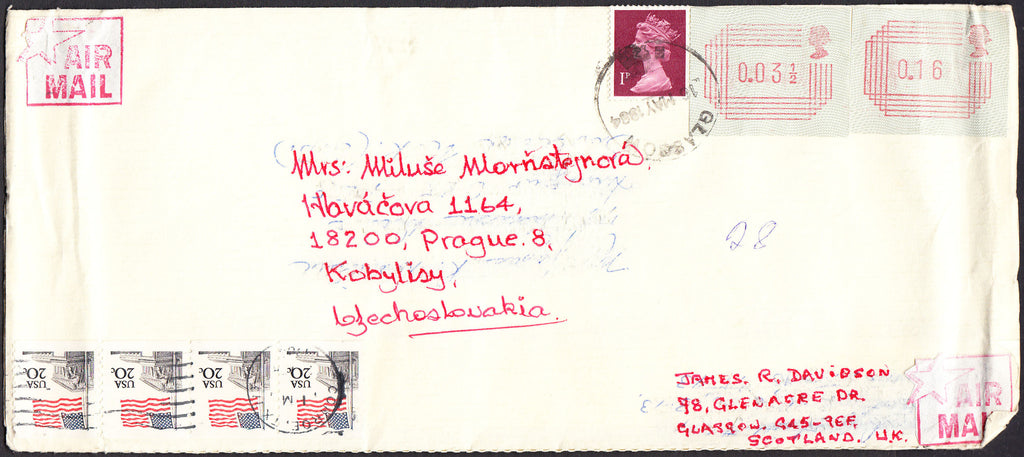 AIR
MAIL
1P
0.03½
0.16
16 MAY 1984
GLASGOW
Mrs: Miluše Morňstejnová.
Hlaváčova 1164,
18200, Prague. 8,
Kobylisy,
Czechoslovakia.
28
USA
20c
USA
20c
USA
20c
USA
20c
JAMES. R. DAVIDSON
98, GLENACRE DR.
GLASGOW. G45-9EF,
SCOTLAND. U.K.
AIR
MA